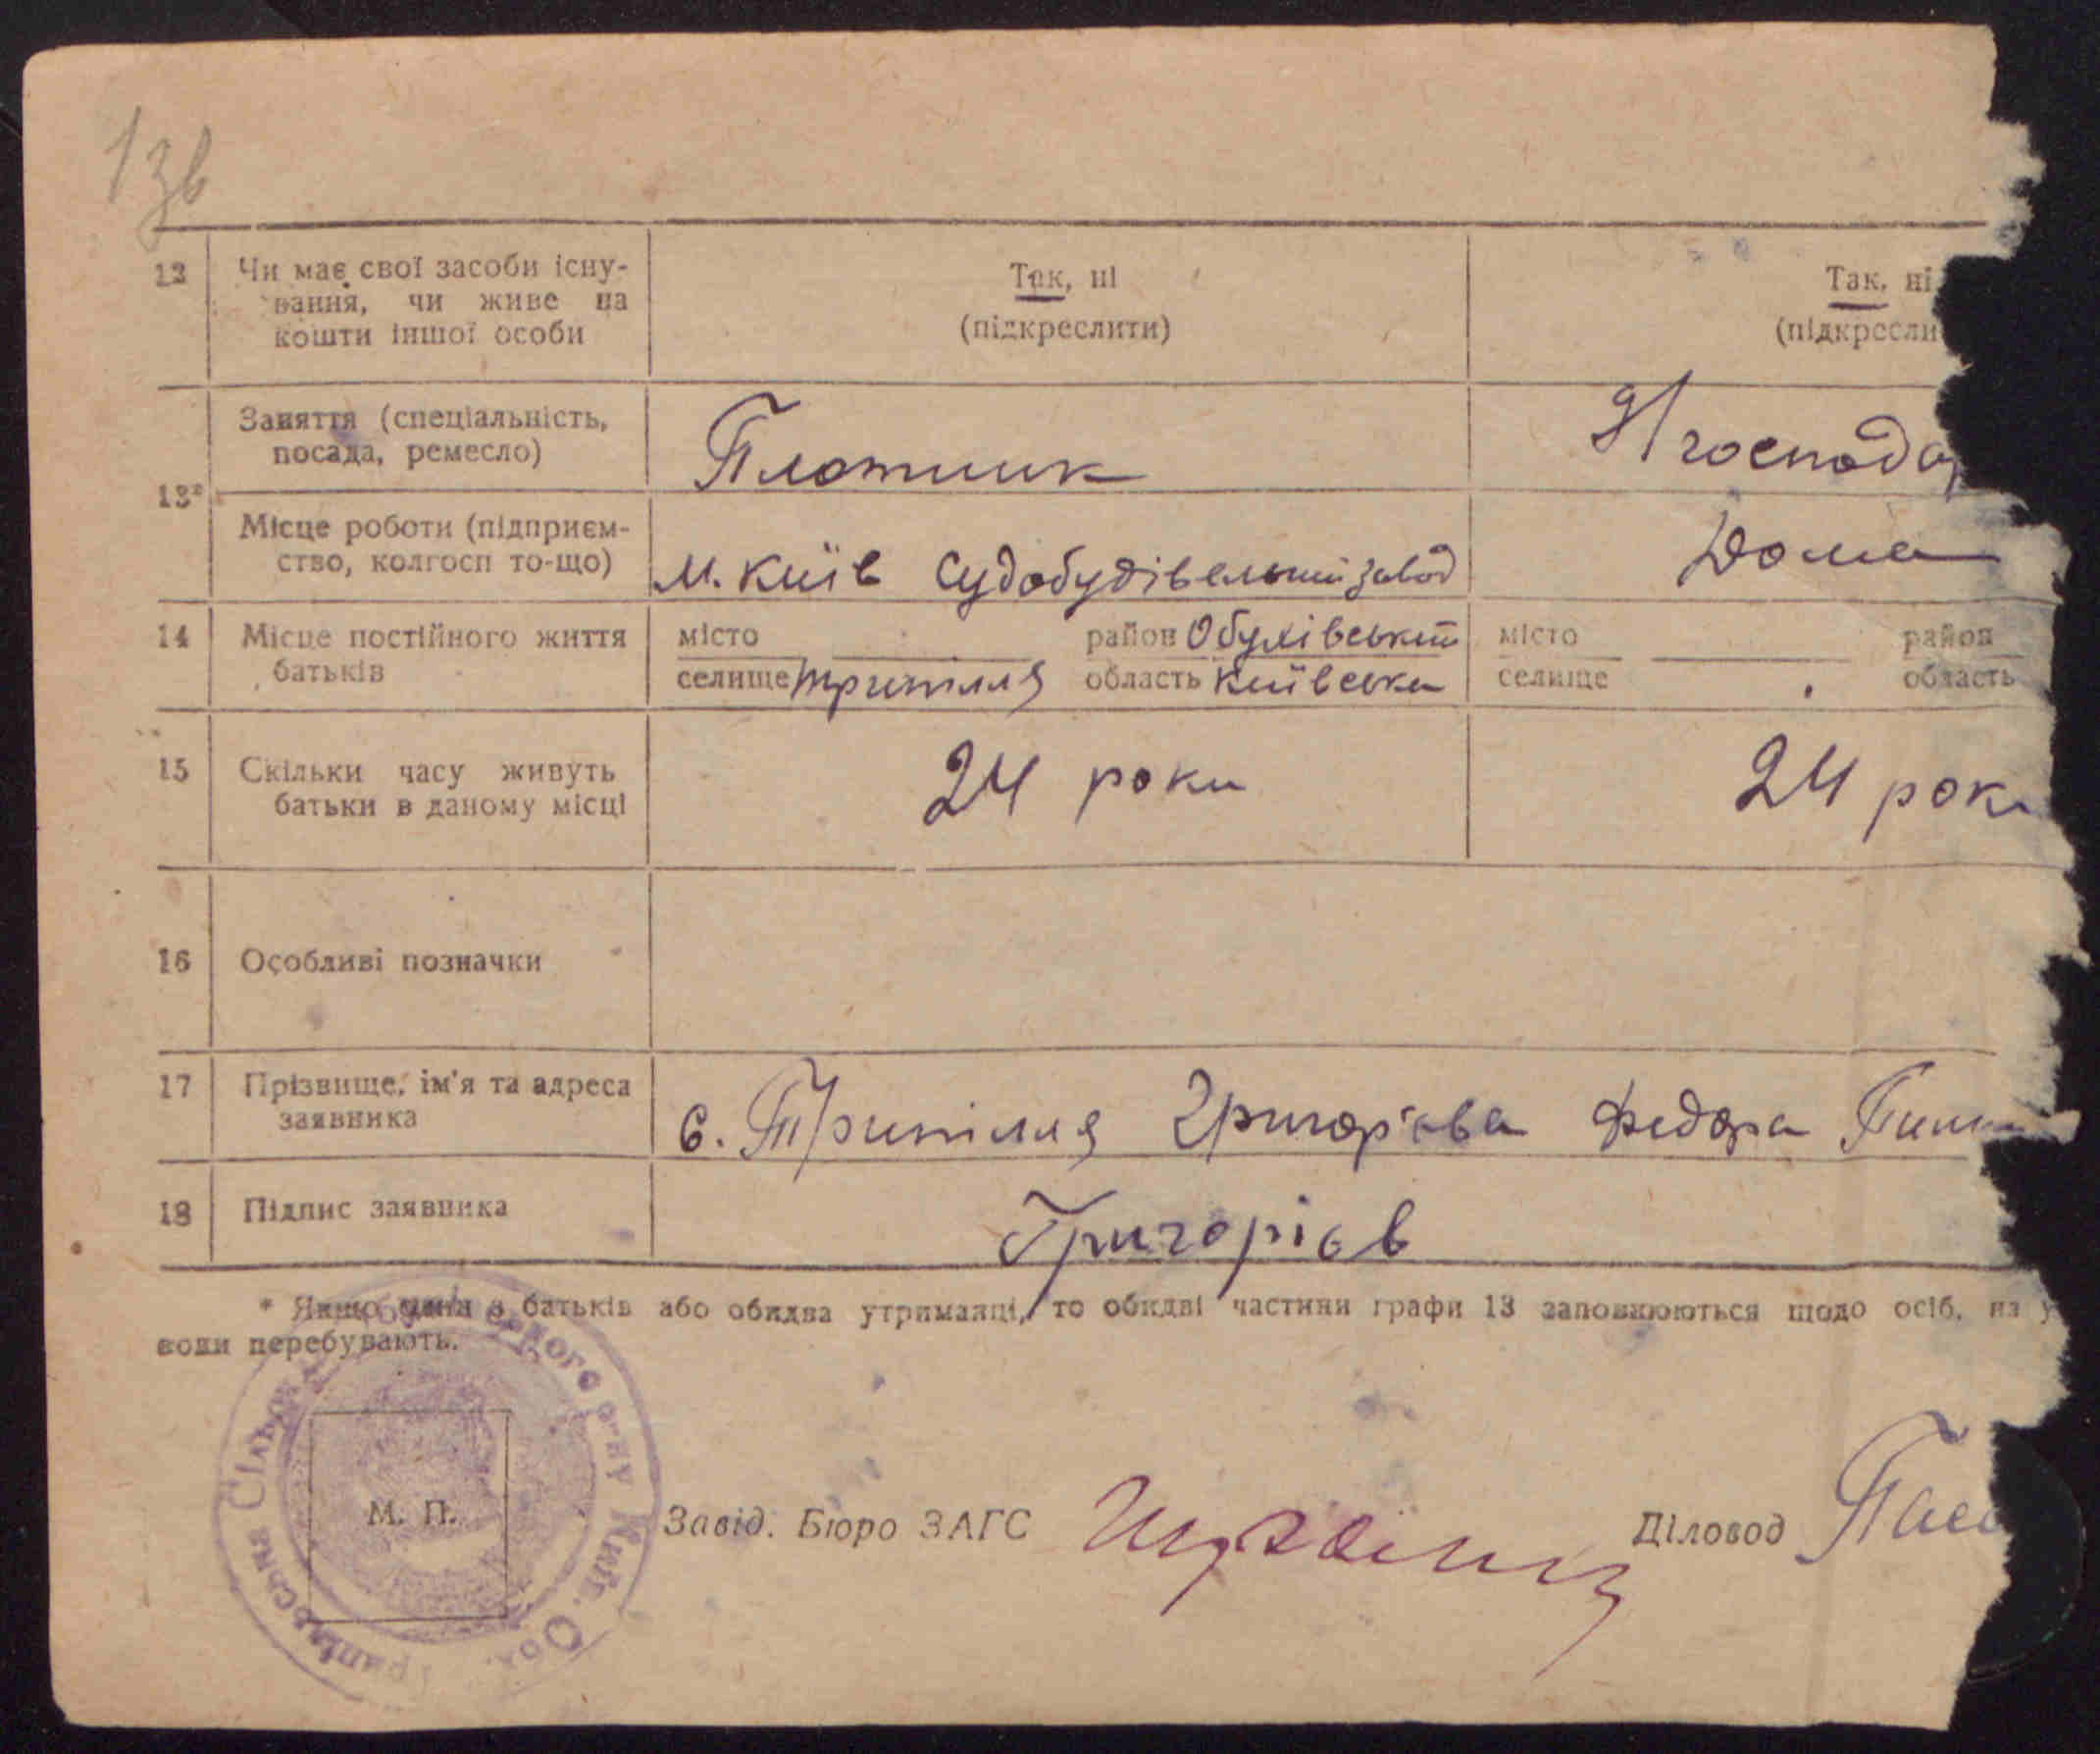 13в
12 Чи має свої засоби існу-
вання, чи живе на
кошти іншої особи
Так, ні
(підкреслити)
Так, ні
(підкресли
13* Заняття (спеціальність,
посада, ремесло)
Плотник
Д/господар
Місце роботи (підприєм-
ство, колгосп то-що)
м. Київ Судобудівельний завод
Дома
14 Місце постійного життя
батьків
місто район Обухівський
селище Трипілля область Київська
місто район
селище область
15 Скільки часу живуть
батьки в даному місці
24 роки
24 роки
16 Особливі позначки
17 Прізвище, ім'я та адреса
заявника
с. Трипілля Григор'єва Федора
18 Підпис заявника
Григорієв
* Якщо один з батьків або обидва утриманці, то обидві частини графи 13 заповнюються щодо осіб, на у
вони перебувають.
М. П.
Трипільська Сільська Київ. Обл.
Завід. Бюро ЗАГС
Діловод